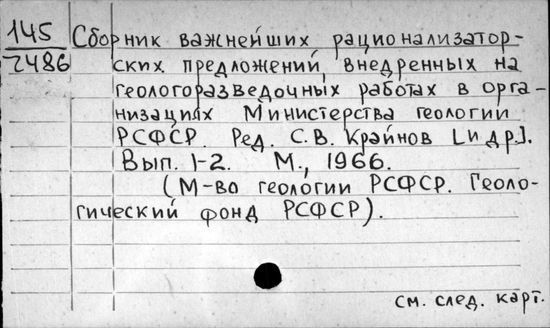 145
2486
Сборник важнейших рационализатор-
ских предложений, внедренных на
геологоразведочных работах в орга-
низациях Министерства геологии
РСФСР. Ред. С.В. Крайнов [и др.].
Вып. 1-2. М., 1966.
(М-во геологии РСФСР. Геоло-
гический фонд РСФСР).
см. след. карт.